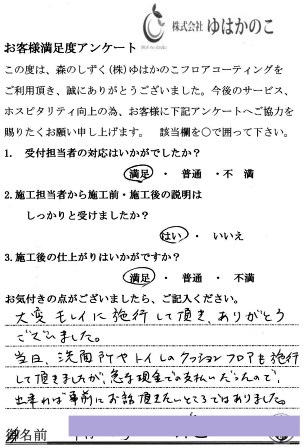 株式会社 ゆはかのこ
お客様満足度アンケート
この度は、森のしずく(株)ゆはかのこフロアコーティングを
ご利用頂き、誠にありがとうございました。今後のサービス、
ホスピタリティ向上の為、お客様に下記アンケートへご協力を
賜りたくお願い申し上げます。 該当欄を○で囲って下さい。
1. 受付担当者の対応はいかがでしたか?
満足 ・ 普通 ・不 満
2.施工担当者から施工前・施工後の説明は
しっかりと受けましたか?
はい ・ いいえ
3.施工後の仕上がりはいかがですか?
満足 ・ 普通 ・ 不満
お気付きの点がございましたら、ご記入ください。
大変キレイに施行して頂き、ありがとう
ございました。
当日、洗面所やトイレのクッションフロアも施行
して頂きましたが、急な現金での支払いだったので、
出来れば事前にお話頂きたいところではありました。
御名前